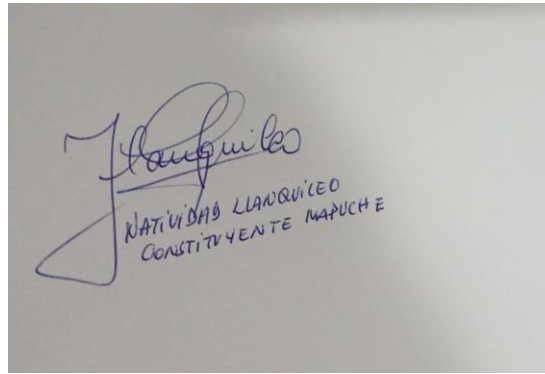 Llanquileo
NATIVIDAD LLANQUILEO
CONSTITUYENTE MAPUCHE